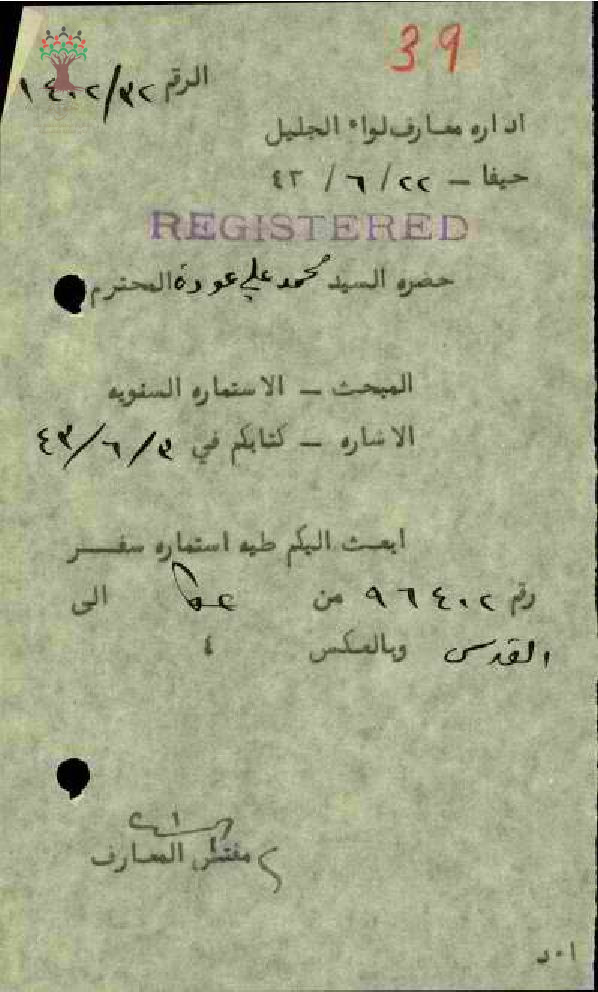 39
الرقم ١٤٠٢/٣٢
اداره معارف لواء الجليل
حيفا – ٢٢ / ٦ / ٤٣
REGISTERED
حضره السيد محمد علي عودة المحترم
المبحث – الاستماره السنويه
الاشاره – كتابكم في ٣/٦/٤٣
ابعث اليكم طيه استماره سفر
رقم ٩٦٤٠٢ من عكا الى
القدس وبالعكس ٤
مفتش المعارف
ا٠د